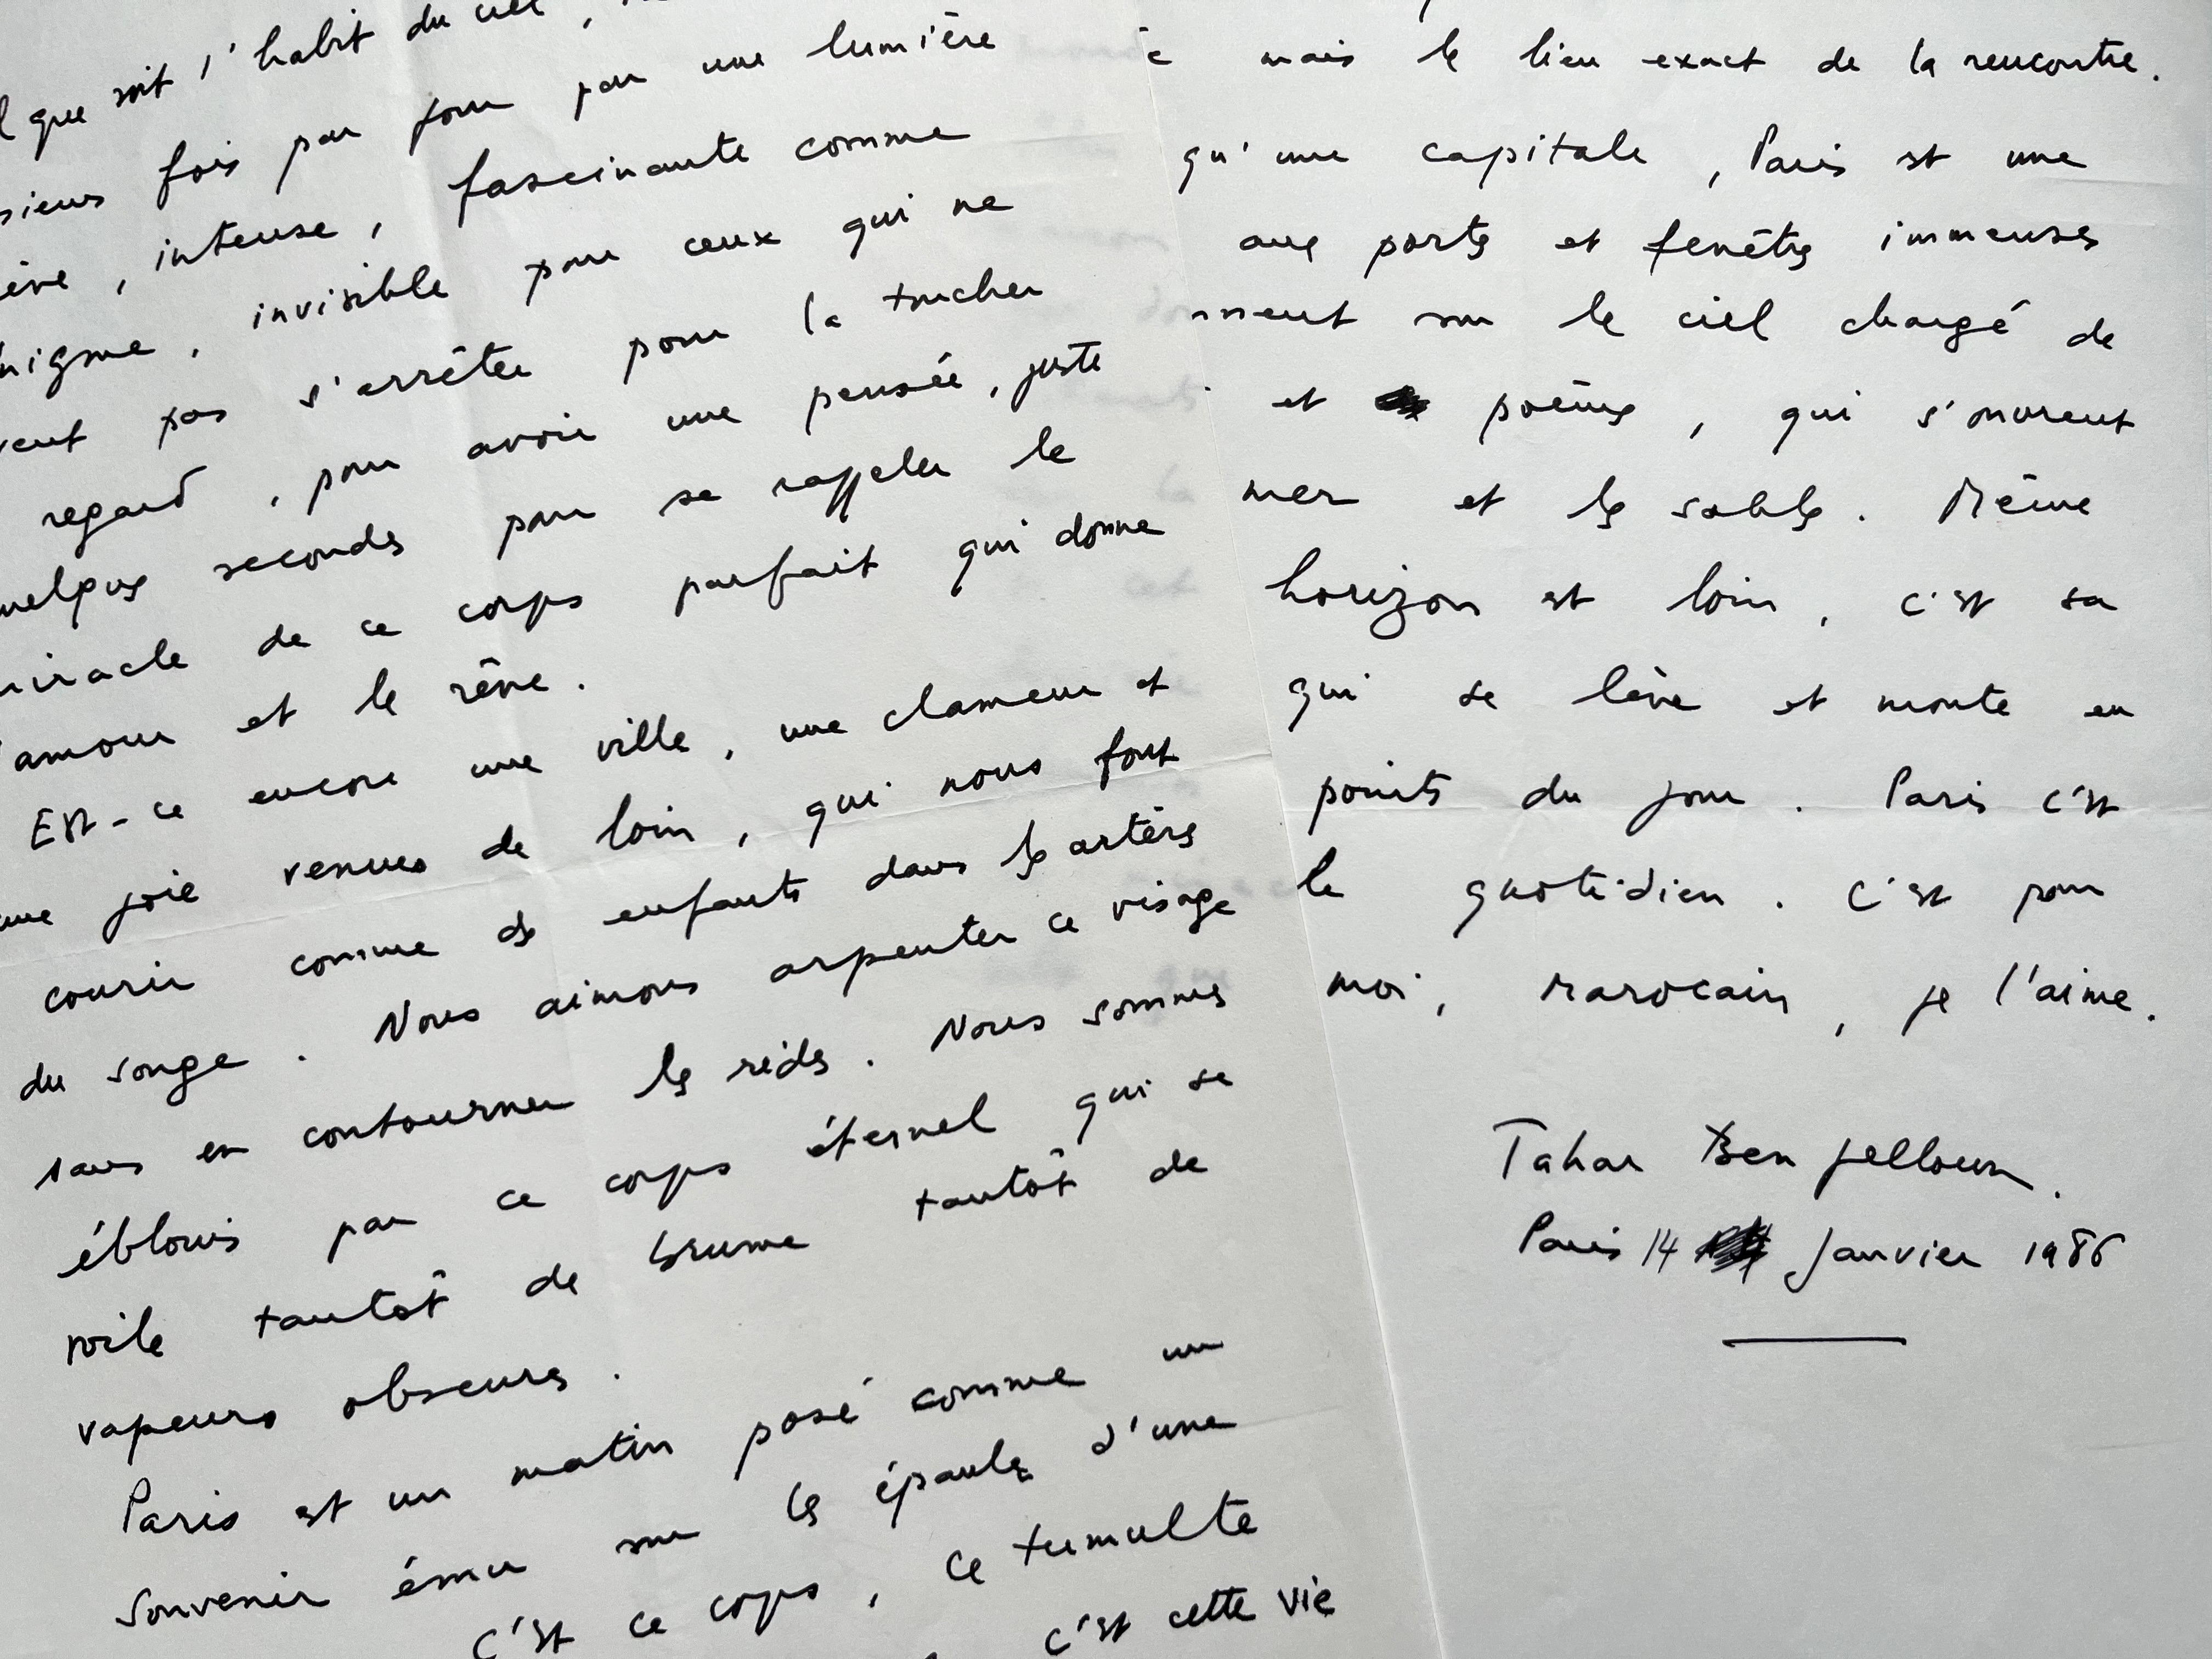 que soit l'habit du ciel,
fois par jour par une lumière
, intense, fascinante comme
, invisible pour ceux qui ne
pas s'arrêter pour la toucher
regard, pour avoir une pensée, juste
secondes pour se rappeler le
de ce corps parfait qui donne
amour et le rêve.
Est-ce encore une ville, une clameur et
joie venues de loin, qui nous font
courir comme des enfants dans les artères
du songe. Nous aimons arpenter ce visage
sans en contourner les rides. Nous sommes
éblouis par ce corps éternel qui se
voile tantôt de brume tantôt de
vapeurs obscures.
Paris est un matin posé comme un
souvenir ému sur les épaules d'une
c'est ce corps, ce tumulte
c'est cette vie
mais le lieu exact de la rencontre.
qu'une capitale, Paris est une
aux portes et fenêtres immenses
sur le ciel chargé de
et poèmes, qui s'ouvrent
mer et les sables. Même
horizon est loin, c'est sa
qui se lève et monte en
points du jour. Paris c'est
le quotidien. C'est pour
moi, marocain, je l'aime.
Tahar Ben Jelloun.
Paris 14 Janvier 1986